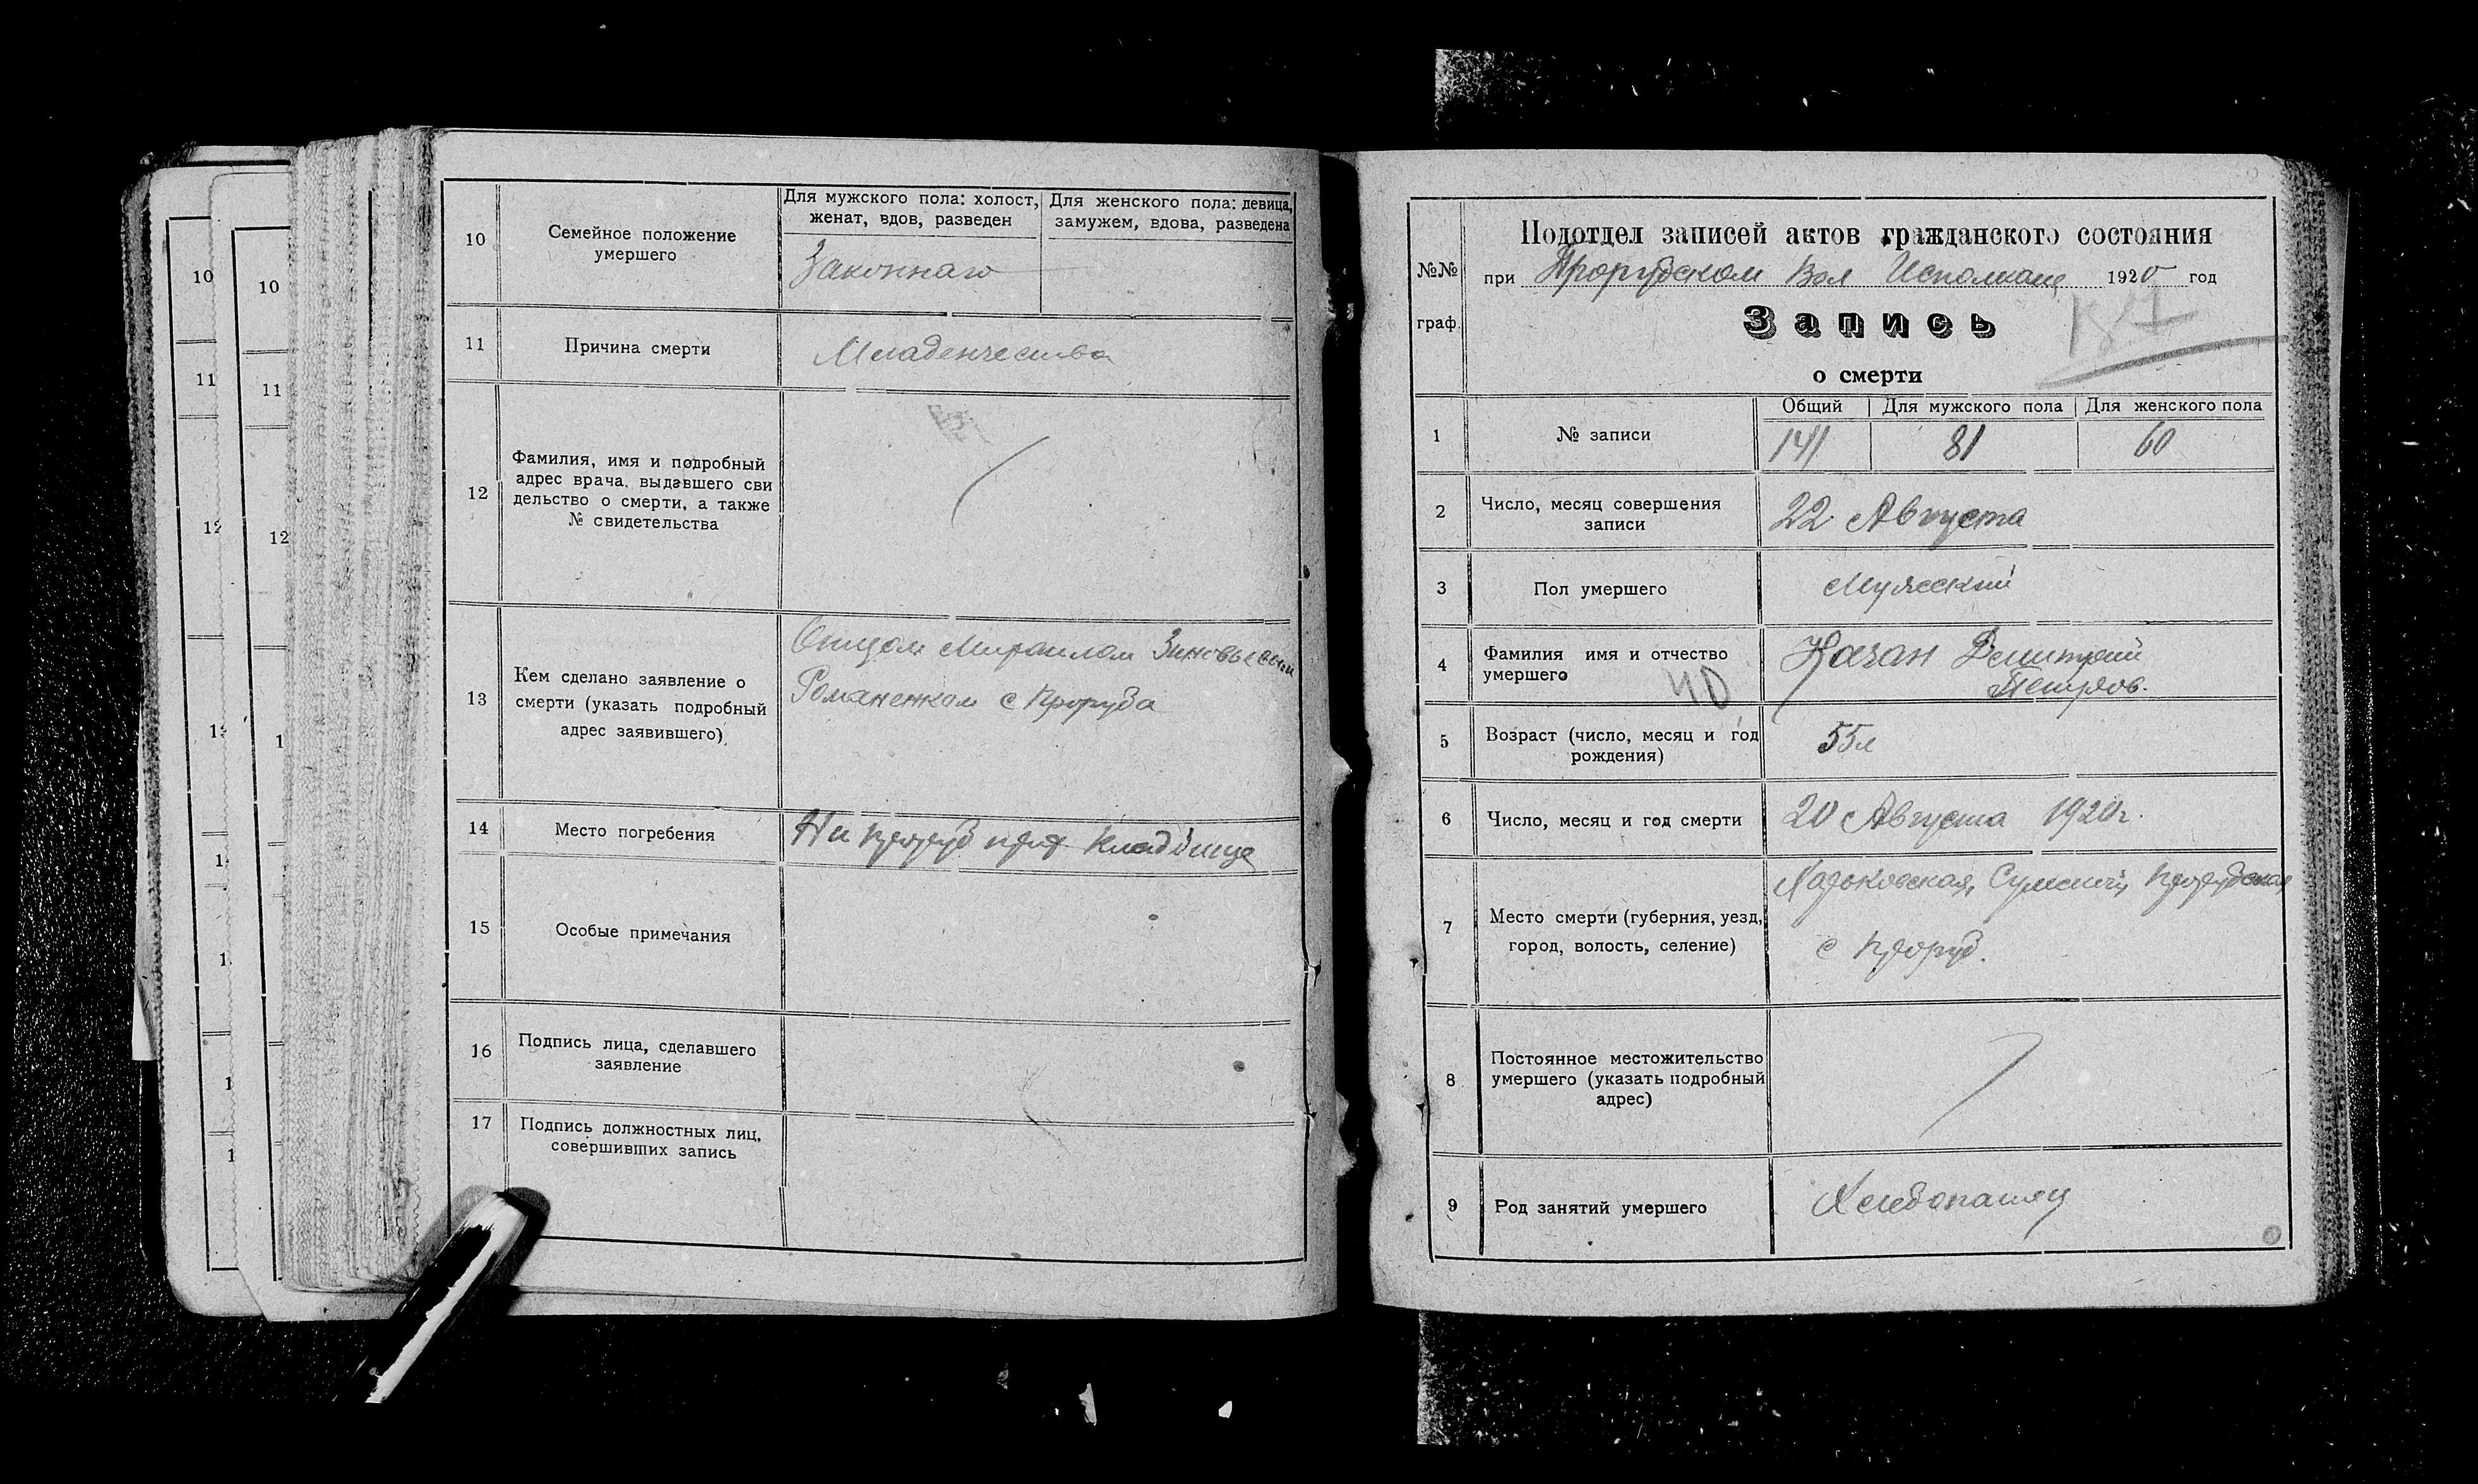 10
11
12
10
11
12
1
10
Семейное положение
умершего
Для мужского пола: холост,
женат, вдов, разведен
Для женского пола: девица,
замужем, вдова, разведена
Законнаго
11
Причина смерти
Младенчества
12
Фамилия, имя и подробный
адрес врача, выдавшего сви
дельство о смерти, а также
№ свидетельства
13
Кем сделано заявление о
смерти (указать подробный
адрес заявившего)
Отцом Михаилом Зиновьевым
Романенком с Проруба
14
Место погребения
На Проруб прих кладбище
15
Особые примечания
16
Подпись лица, сделавшего
заявление
17
Подпись должностных лиц,
совершивших запись
№№
граф.
Подотдел записей актов гражданского состояния
при Прорубском Вол Исполкоме 1920 год
Запись
о смерти
1
№ записи
Общий
Для мужского пола
Для женского пола
141
81
60
2
Число, месяц совершения
записи
22 Августа
3
Пол умершего
Мужский
4
Фамилия имя и отчество
умершего
40
Качан Демитрий
Петров.
5
Возраст (число, месяц и год
рождения)
55л
6
Число, месяц и год смерти
20 Августа 1920г.
7
Место смерти (губерния, уезд,
город, волость, селение)
Харьковская, Сумский, Прорубская
с Проруб.
8
Постоянное местожительство
умершего (указать подробный
адрес)
9
Род занятий умершего
Хлебопашец